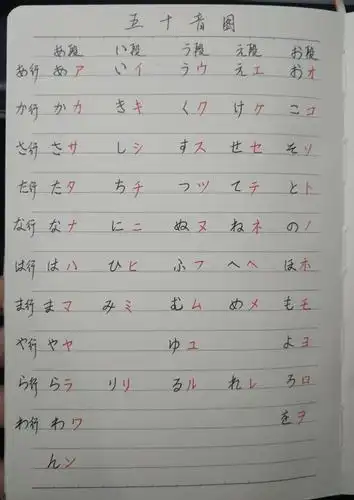 五十音图
あ段 い段 う段 え段 お段
あ行 あア いイ うウ えエ おオ
か行 かカ きキ くク けケ こコ
さ行 さサ しシ すス せセ そソ
た行 たタ ちチ つツ てテ とト
な行 なナ にニ ぬヌ ねネ のノ
は行 はハ ひヒ ふフ へヘ ほホ
ま行 まマ みミ むム めメ もモ
や行 やヤ ゆユ よヨ
ら行 らラ りリ るル れレ ろロ
わ行 わワ をヲ
んン